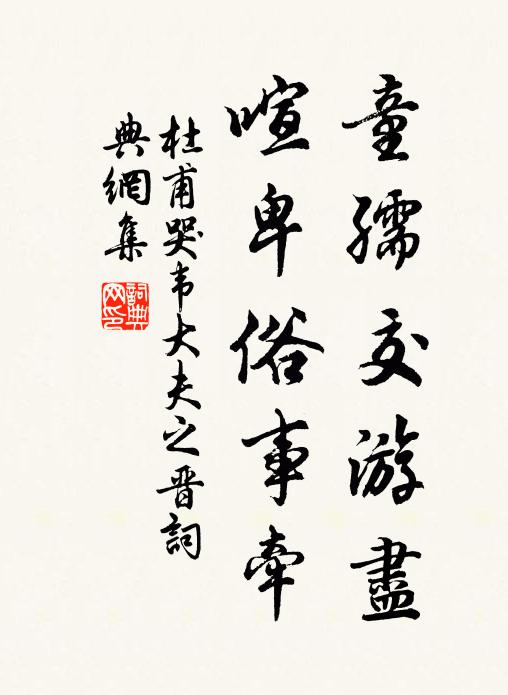 童孺交游盡
喧卑俗事牽
杜甫哭韦大夫之晋詞
典網集
詞典网印